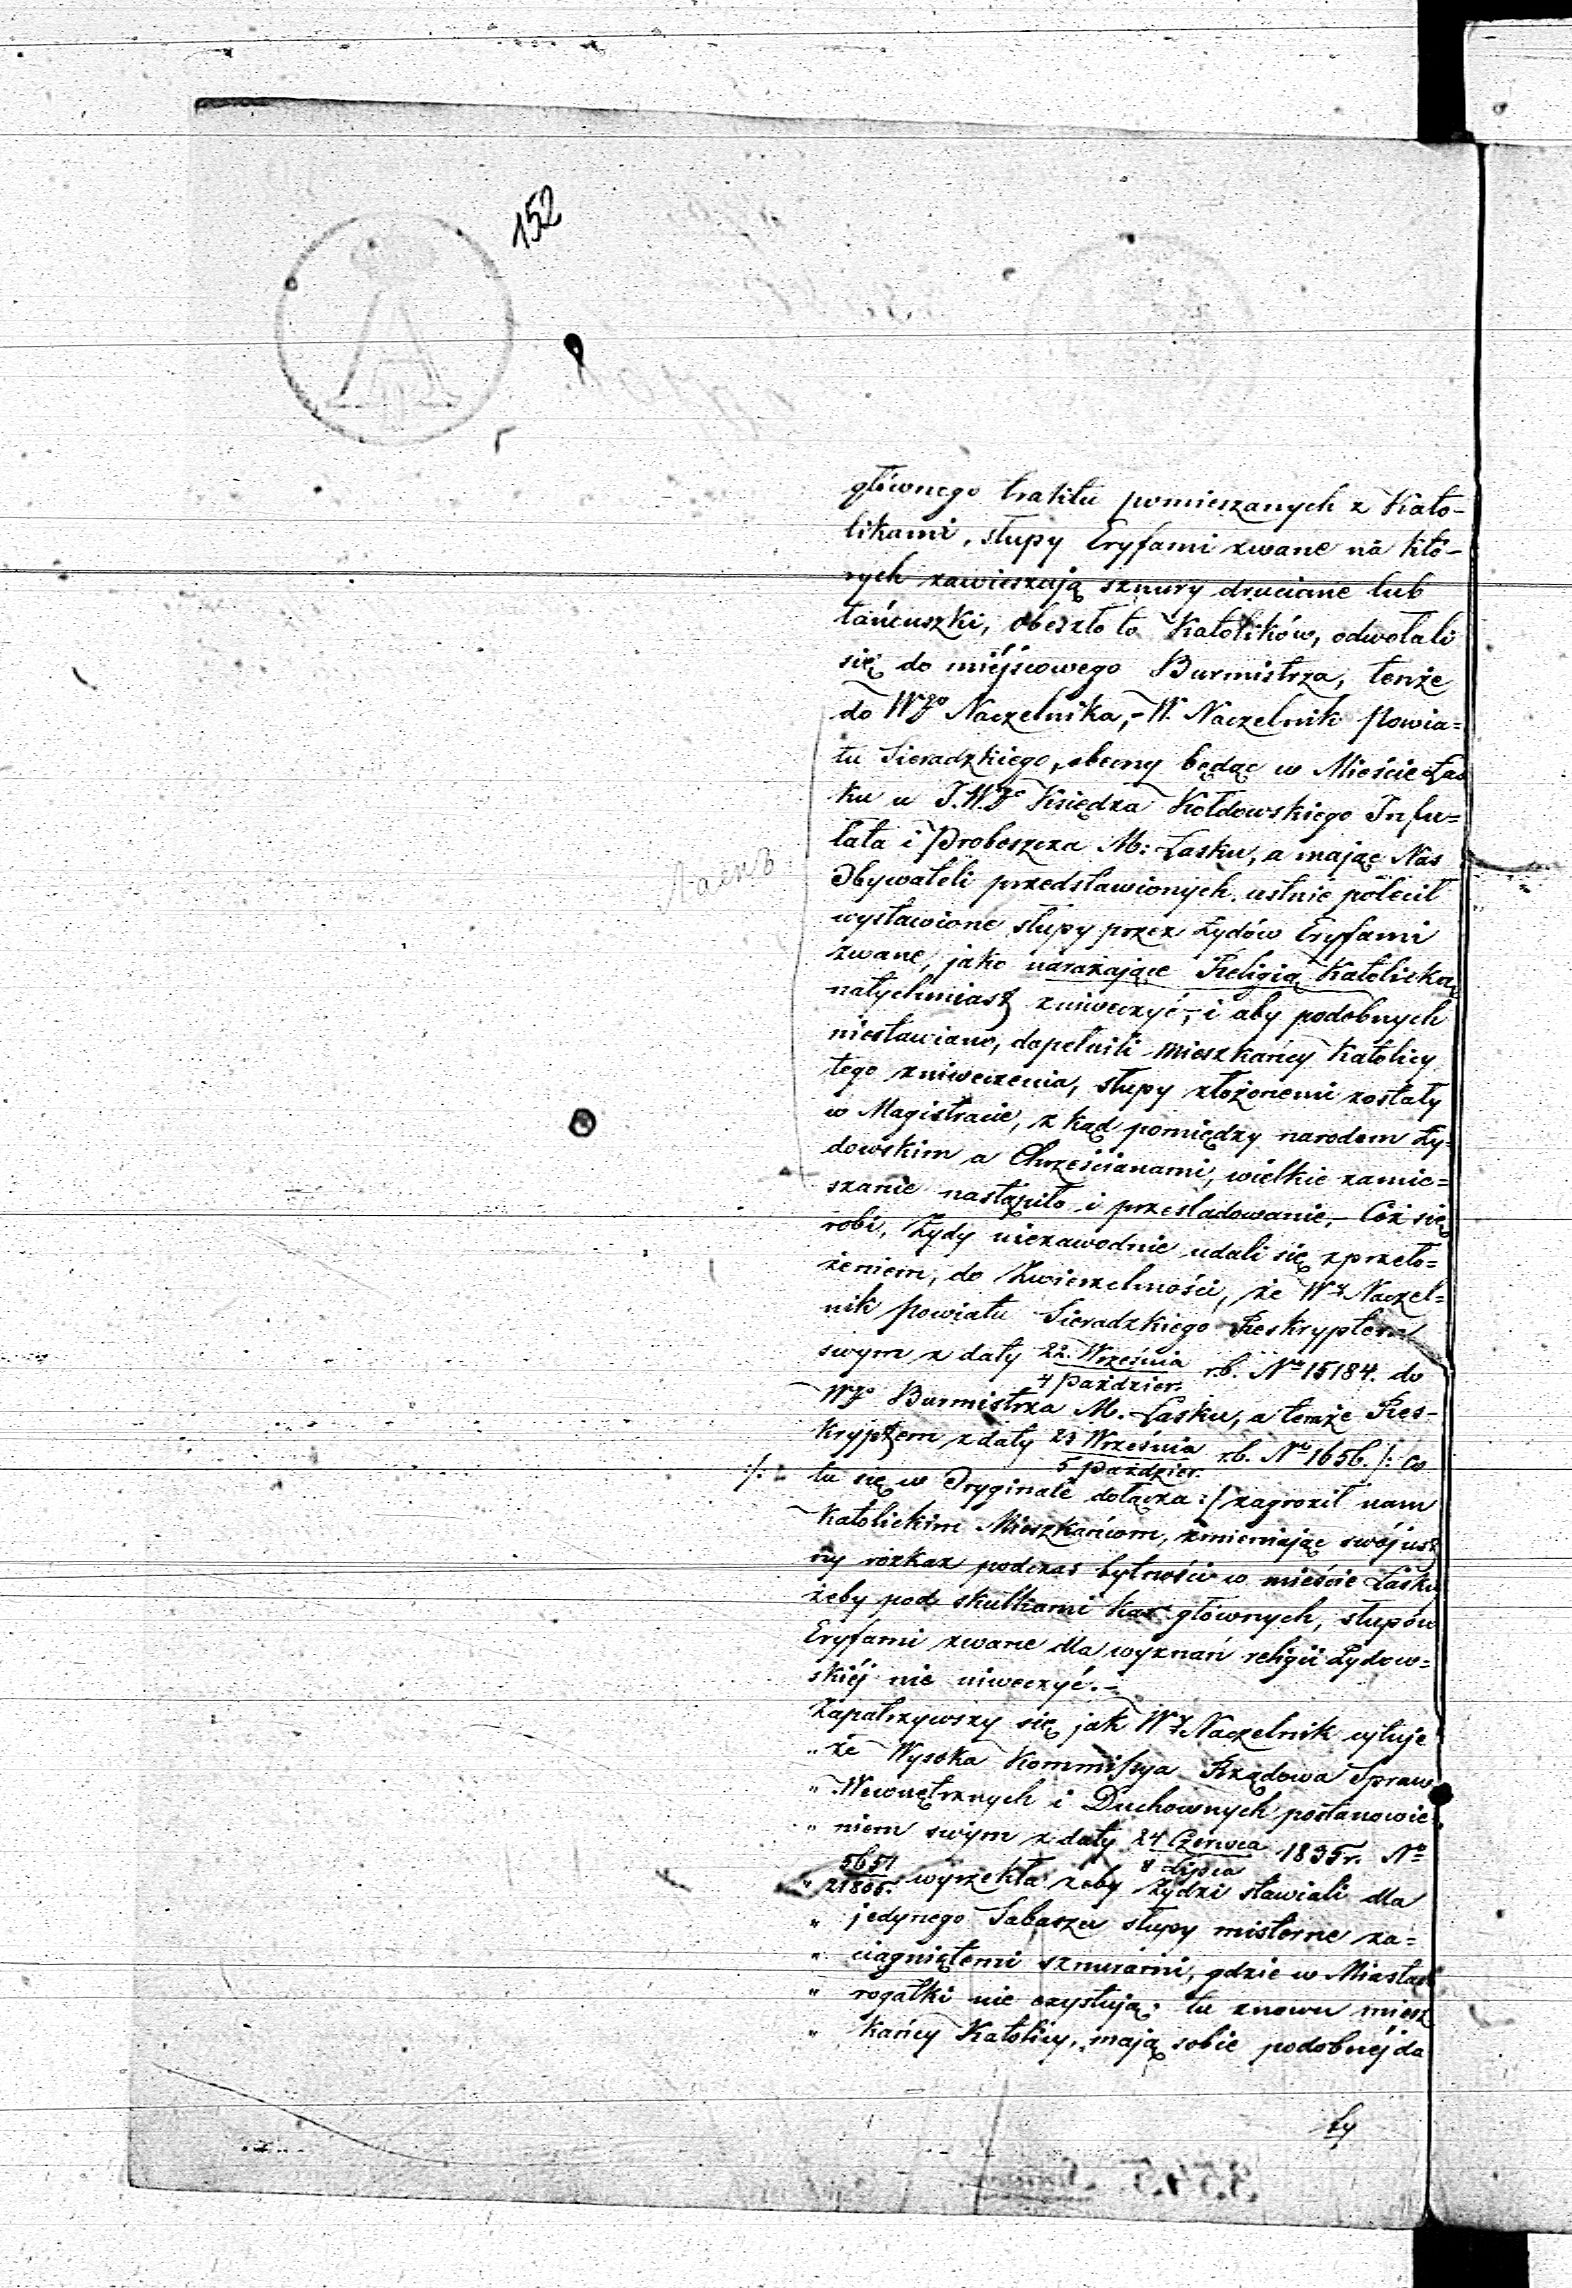 152
głównego traktu pomieszanych z Kato-
likami, słupy Eryfami zwane na któ-
rych zawieszają sznury druciane lub
łańcuszki, obeszło to Katolików, odwołali
się do miejscowego Burmistrza, tenże
do Wgo Naczelnika, - W. Naczelnik Powia=
tu Sieradzkiego, obecny będąc w Mieście Łas
ku u J.W.go Księdza Kołdowskiego Infu=
łata i Proboszcza M: Łasku, a mając Nas
Obywateli przedstawionych ustnie polecił
wystawione słupy przez Żydów Eryfami
zwane, jako narażające Religią Katolicką
natychmiast zniweczyć, i aby podobnych
niestawiano, dopełnili mieszkańcy Katolicy
tego zniweczenia, słupy złożonemi zostały
w Magistracie, z kąd pomiędzy narodem Ży-
dowskim a Chrześcianami, wielkie zamie=
szanie nastąpiło i prześladowanie, - Cóż się
robi, Żydy niezawodnie udali się z przeło=
żeniem, do Zwierzchności, że Wy Naczel=
nik Powiatu Sieradzkiego Reskryptem
swym z daty 22. Września / 4 Paździer. r.b. No 15184. do
Wgo Burmistrza M. Łasku, a tenże Res-
kryptem z daty 23 Września / 5 Paździer. r.b. No 1656. /: co
:/: tu się w Oryginale dołącza :/ zagroził nam
Katolickim Mieszkańcom, zmieniając swój ust
ny rozkaz podczas bytności w mieście Łasku
żeby pod skutkami kar głównych, słupów
Eryfami zwane dla wyznań religii Żydow=
skiéj nie niweczyć. -
Zapatrzywszy się jak Wy Naczelnik cytuje
„ że Wysoka Kommissya Rządowa Spraw
„ Wewnętrznych i Duchownych postanowie
„ niem swym z daty 24 Czerwca / 8 Lipca 1835 r. No
„ 5651 / 21806. wyrzekła żeby Żydzi stawiali dla
„ jedynego Sabaszu słupy misterne za=
„ ciagniętemi sznurami, gdzie w Miastach
„ rogatki nie exystują; tu znowu miesz
„ kańcy Katolicy, mają sobie podobnéj da
ty